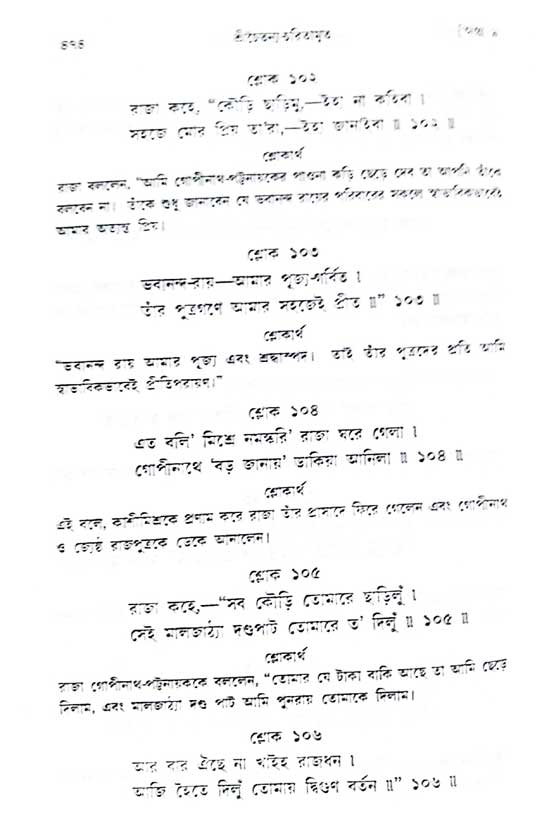 ৪৭৪ শ্রীচৈতন্য-চরিতামৃত [অন্ত্য ৯
শ্লোক ১০২
রাজা কহে, “কৌড়ি ছাড়িমু,—ইহা না কহিবা ।
সহজে মোর প্রিয় তা'রা,—ইহা জানাইবা ॥ ১০২ ॥
শ্লোকার্থ
রাজা বললেন, “আমি গোপীনাথ-পট্টনায়কের পাওনা কড়ি ছেড়ে দেব তা আপনি তাঁকে
বলবেন না। তাঁকে শুধু জানাবেন যে ভবানন্দ রায়ের পরিবারের সকলে স্বাভাবিকভাবেই
আমার অত্যন্ত প্রিয়।
শ্লোক ১০৩
ভবানন্দ-রায়—আমার পূজ্য-গর্বিত ।
তাঁর পুত্রগণে আমার সহজেই প্রীত ॥” ১০৩ ॥
শ্লোকার্থ
“ভবানন্দ রায় আমার পূজ্য এবং শ্রদ্ধাস্পদ। তাই তাঁর পুত্রদের প্রতি আমি
স্বাভাবিকভাবেই প্রীতিপরায়ণ।”
শ্লোক ১০৪
এত বলি' মিশ্রে নমস্করি' রাজা ঘরে গেলা ।
গোপীনাথে 'বড় জানায়' ডাকিয়া আনিলা ॥ ১০৪ ॥
শ্লোকার্থ
এই বলে, কাশীমিশ্রকে প্রণাম করে রাজা তাঁর প্রাসাদে ফিরে গেলেন এবং গোপীনাথ
ও জ্যেষ্ঠ রাজপুত্রকে ডেকে আনালেন।
শ্লোক ১০৫
রাজা কহে,—“সব কৌড়ি তোমারে ছাড়িলুঁ ।
সেই মালজাঠ্যা দণ্ডপাট তোমারে ত' দিলুঁ ॥ ১০৫ ॥
শ্লোকার্থ
রাজা গোপীনাথ-পট্টনায়ককে বললেন, “তোমার যে টাকা বাকি আছে তা আমি ছেড়ে
দিলাম, এবং মালজাঠ্যা দণ্ড পাট আমি পুনরায় তোমাকে দিলাম।
শ্লোক ১০৬
আর বার ঐছে না খাইহ রাজধন ।
আজি হৈতে দিলুঁ তোমায় দ্বিগুণ বর্তন ॥” ১০৬ ॥